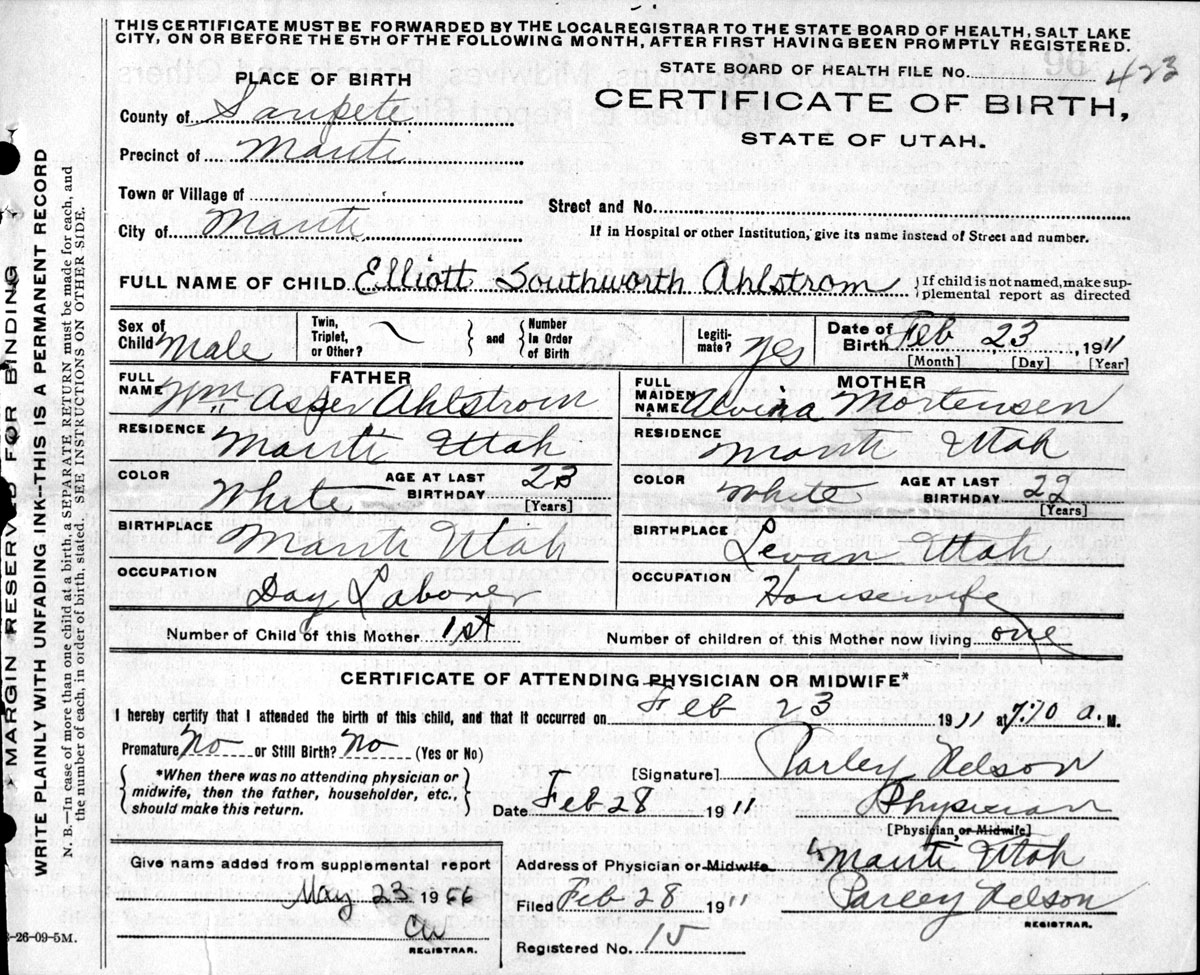 THIS CERTIFICATE MUST BE FORWARDED BY THE LOCAL REGISTRAR TO THE STATE BOARD OF HEALTH, SALT LAKE
CITY, ON OR BEFORE THE 5TH OF THE FOLLOWING MONTH, AFTER FIRST HAVING BEEN PROMPTLY REGISTERED.
PLACE OF BIRTH
STATE BOARD OF HEALTH FILE No. 423
County of Sanpete
CERTIFICATE OF BIRTH,
STATE OF UTAH.
Precinct of Manti
Town or Village of
Street and No.
City of Manti
If in Hospital or other Institution, give its name instead of Street and number.
FULL NAME OF CHILD Elliott Southworth Ahlstrom } If child is not named, make sup-
plemental report as directed
Sex of Child Male
Twin, Triplet, or Other? } and { Number In Order of Birth
Legiti-mate? Yes
Date of Birth Feb 23, 1911
[Month] [Day] [Year]
FATHER
FULL NAME Wm Asper Ahlstrom
MOTHER
FULL MAIDEN NAME Alvina Mortensen
RESIDENCE Manti Utah
RESIDENCE Manti Utah
COLOR White AGE AT LAST BIRTHDAY 23 [Years]
COLOR White AGE AT LAST BIRTHDAY 22 [Years]
BIRTHPLACE Manti Utah
BIRTHPLACE Levan Utah
OCCUPATION Day Laborer
OCCUPATION Housewife
Number of Child of this Mother 1st Number of children of this Mother now living one
CERTIFICATE OF ATTENDING PHYSICIAN OR MIDWIFE*
I hereby certify that I attended the birth of this child, and that it occurred on Feb 23 1911 at a. M.
Premature No or Still Birth? No (Yes or No)
{ *When there was no attending physician or
midwife, then the father, householder, etc.,
should make this return. }
[Signature] Parley Nelson
Date Feb 28 1911 Physician
[Physician, or Midwife]
Give name added from supplemental report
May 23 1956
REGISTRAR.
Address of Physician or Midwife Manti Utah
Filed Feb 28 1911 Parley Nelson
REGISTRAR.
Registered No. 15
-26-09-5M.
MARGIN RESERVED FOR BINDING
WRITE PLAINLY WITH UNFADING INK--THIS IS A PERMANENT RECORD
N. B.—In case of more than one child at a birth, a SEPARATE RETURN must be made for each, and
the number of each, in order of birth, stated. SEE INSTRUCTIONS ON OTHER SIDE.